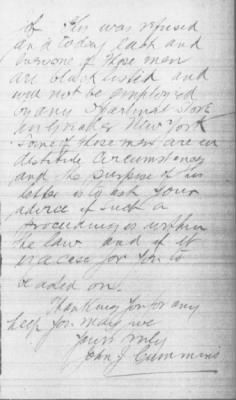 of this was refused
and today each and
everyone of those men
are black listed and
will not be employed
by any
in greater New York
some of those men are in
distitute circumstances
and the purpose of this
letter is to ask your
advice if such a
proceeding is within
the law and if it
is a case for you to
be acted on.
Thanking you for any
help you may give
Yours truly
John J Cummins